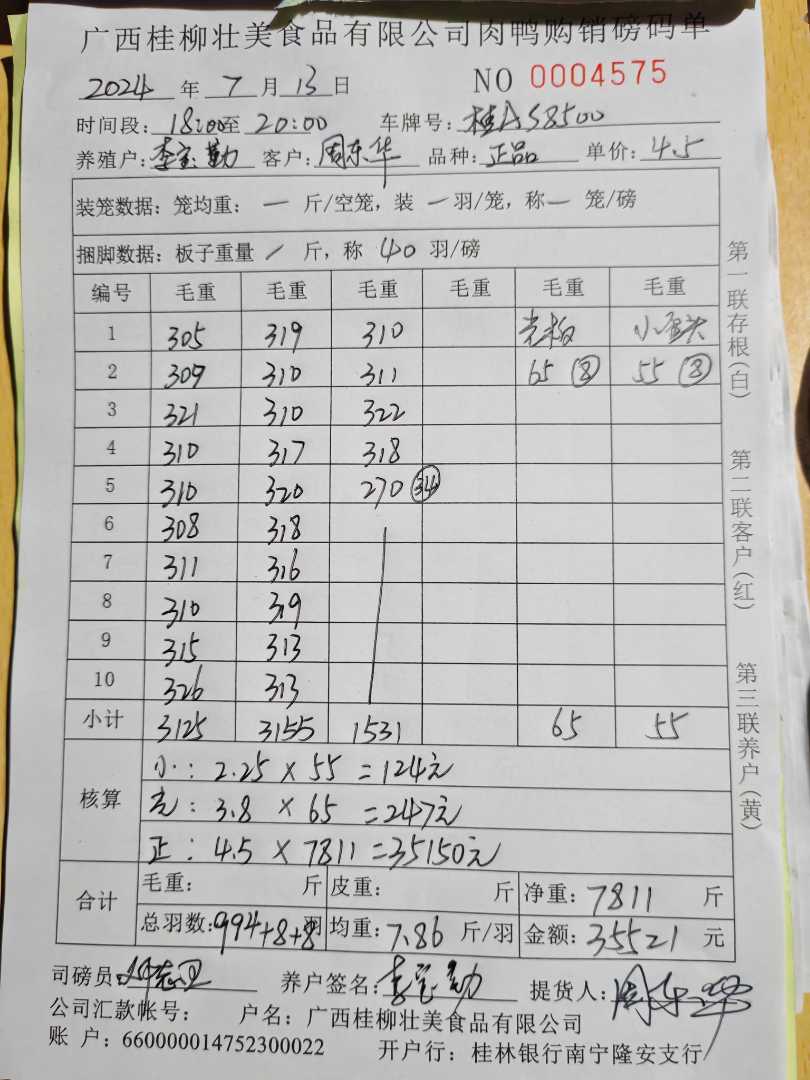 广西桂柳壮美食品有限公司肉鸭购销磅码单
2024 年 7 月 13 日 NO 0004575
时间段: 18:00至 20:00 车牌号: 桂AS8500
养殖户: 李宝勤 客户: 周东华 品种: 正品 单价: 4.5
装笼数据: 笼均重: 一 斤/空笼, 装 一 羽/笼, 称 一 笼/磅
捆脚数据: 板子重量 / 斤, 称 40 羽/磅
编号 毛重 毛重 毛重 毛重 毛重 毛重
1 305 319 310 光板
2 309 310 311 65 ⑧ 55 ⑧
3 321 310 322
4 310 317 318
5 310 320 270 34
6 308 318
7 311 316
8 310 319
9 315 313
10 326 313
小计 3125 3155 1531 65 55
核算
小: 2.25 × 55 = 124元
光: 3.8 × 65 = 247元
正: 4.5 × 7811 = 35150元
合计
毛重: 斤 皮重: 斤 净重: 7811 斤
总羽数: 994+8+8 羽 均重: 7.86 斤/羽 金额: 35521 元
司磅员: 养户签名: 李宝勤 提货人: 周东华
公司汇款帐号: 户名: 广西桂柳壮美食品有限公司
账 户: 660000014752300022 开户行: 桂林银行南宁隆安支行
第一联存根(白)
第二联客户(红)
第三联养户(黄)